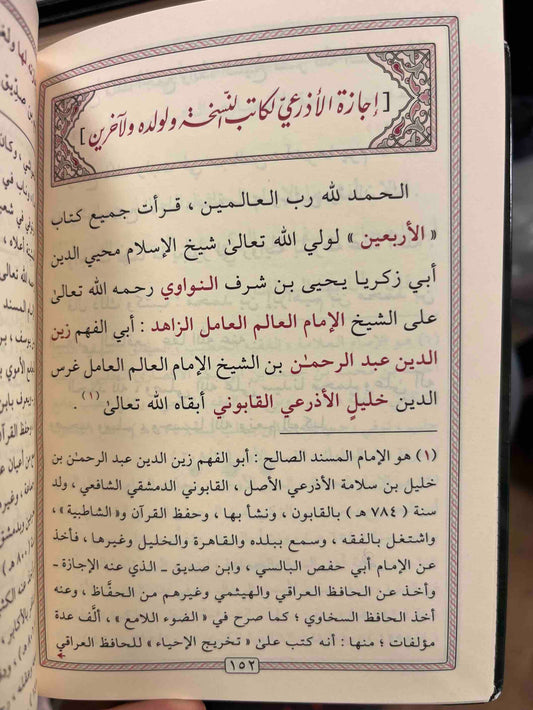 [ إجازة الأذرعيّ لكاتب النّسخة ولولده ولآخرين ]
الـحـمـد لله رب الـعـالـمـيـن ، قـرأت جـمـيـع كـتـاب
« الأربعين » لولي الله تعالىٰ شيخ الإسلام محيي الدين
أبي زكريا يحيى بن شرف النـواوي رحمه الله تعالىٰ
على الشيخ الإمام العالم العامل الزاهد : أبي الفهم زين
الدين عبد الرحمـٰن بن الشيخ الإمام العالم العامل غرس
الدين خليلٍ الأذرعي القابوني أبقاه الله تعالىٰ (١) .
(١) هو الإمام المسند الصالح : أبو الفهم زين الدين عبد الرحمـٰن بن
خليل بن سلامة الأذرعي الأصل ، القابوني الدمشقي الشافعي ، ولد
سنة ( ٧٨٤ هـ ) بالقابون ، ونشأ بها ، وحفظ القرآن و« الشاطبية » ،
واشتغل بالفقه ، وسمع ببلده والقاهرة والخليل وغيرها ، فأخذ
عن الإمام أبي حفص البالسي ، وابن صديق ـ الذي عنه الإجازة ـ
وأخذ عن الحافظ العراقي والهيثمي وغيرهم من الحفَّاظ ، وعنه
أخذ الحافظ السخاوي ؛ كما صرح في « الضوء اللامع » ، ألَّف عدة
مؤلفات ؛ منها : أنه كتب علىٰ « تخريج الإحياء » للحافظ العراقي
١٥٢